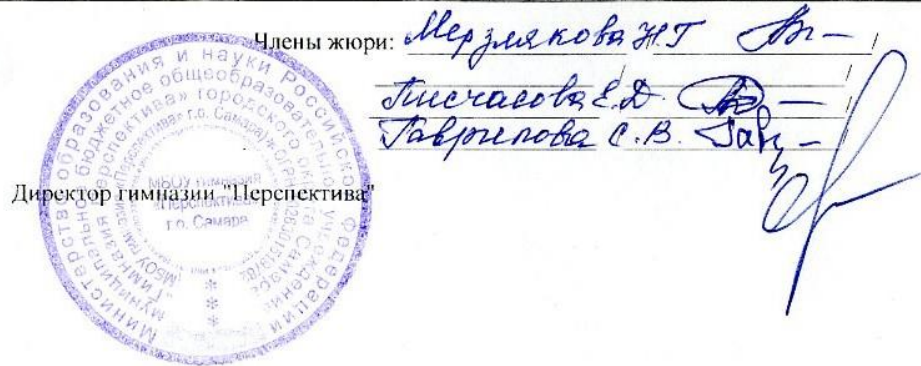 Члены жюри: Мерзлякова Н.Г
Писчасова Е.Д.
Гаврилова С.В.
Директор гимназии "Перспектива"
Министерство образования и науки Российской Федерации
муниципальное бюджетное общеобразовательное учреждение
"Гимназия "Перспектива" городского округа Самара
МБОУ гимназия
«Перспектива»
г.о. Самара